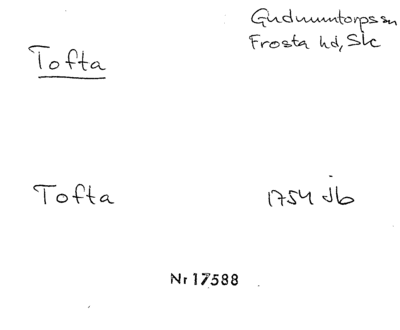 Gudmuntorps sn
Tofta
Frosta hd, Sk
Tofta
1754 Jb
Nr 17588